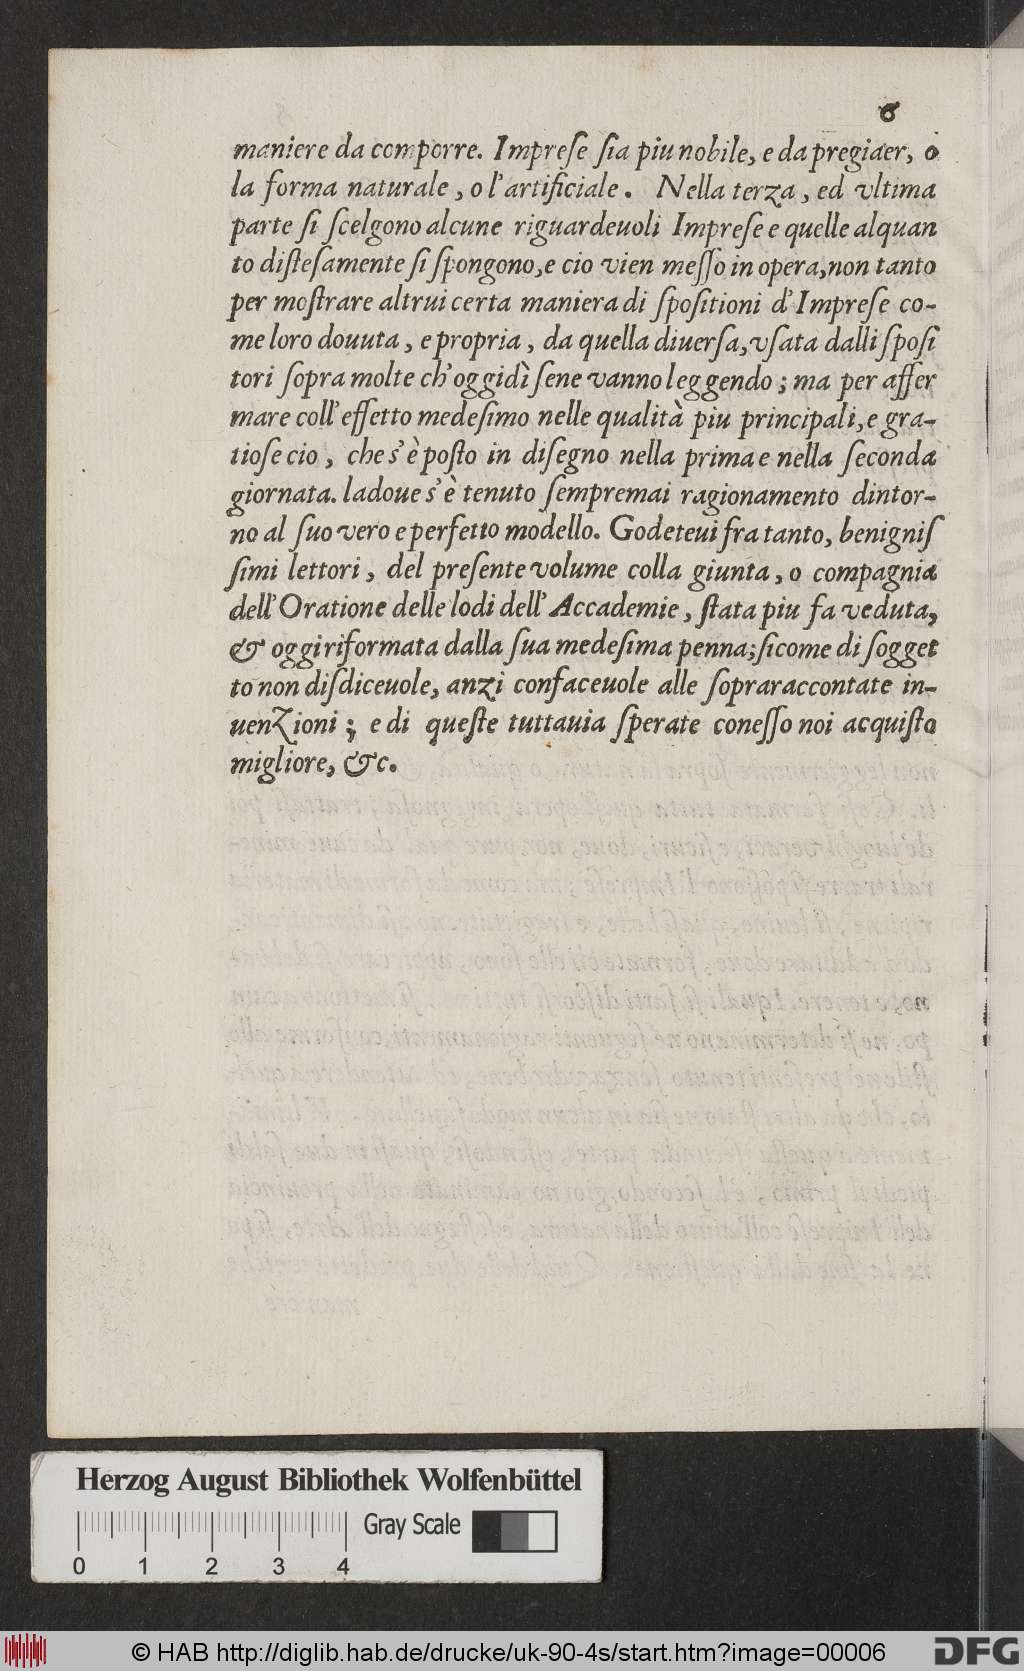 6
maniere da comporre. Imprese sia piu nobile, e da pregiaer, o
la forma naturale, o l'artificiale. Nella terza, ed vltima
parte si scelgono alcune riguardeuoli Imprese e quelle alquan
to distesamente si spongono, e cio vien messo in opera, non tanto
per mostrare altrui certa maniera di spositioni d'Imprese co-
me loro douuta, e propria, da quella diuersa, vsata dalli sposi
tori sopra molte ch'oggidì sene vanno leggendo; ma per affer
mare coll'effetto medesimo nelle qualità piu principali, e gra-
tiose cio, che s'è posto in disegno nella prima e nella seconda
giornata. ladoue s'è tenuto sempremai ragionamento dintor-
no al suo vero e perfetto modello. Godeteui fra tanto, benignis
simi lettori, del presente volume colla giunta, o compagnia
dell'Oratione delle lodi dell'Accademie, stata piu fa veduta,
& oggi riformata dalla sua medesima penna; sicome di sogget
to non disdiceuole, anzi confaceuole alle sopraraccontate in-
uenzioni; e di queste tuttauia sperate conesso noi acquisto
migliore, &c.
Herzog August Bibliothek Wolfenbüttel
Gray Scale
0 1 2 3 4
© HAB http://diglib.hab.de/drucke/uk-90-4s/start.htm?image=00006
DFG